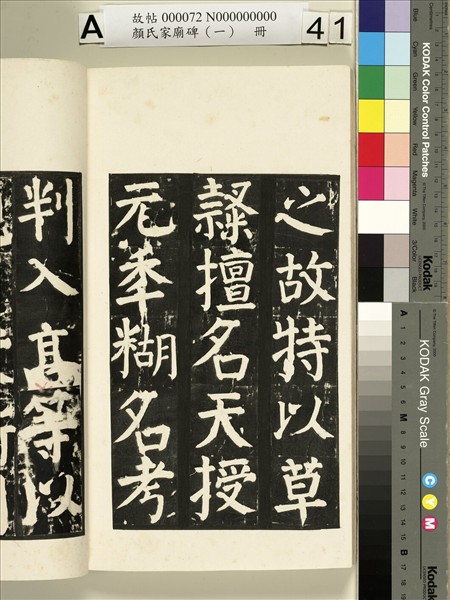 故帖 000072 N000000000
顏氏家廟碑（一） 冊
A
41
之故特以草
隸擅名天授
元年糊名考
判入高等以
KODAK Color Control Patches
Blue
Cyan
Green
Yellow
Red
Magenta
White
3/Color
Black
Kodak
KODAK Gray Scale
Kodak
C
Y
M
A
1
2
3
4
5
6
M
8
9
10
11
12
13
14
15
B
17
18
19